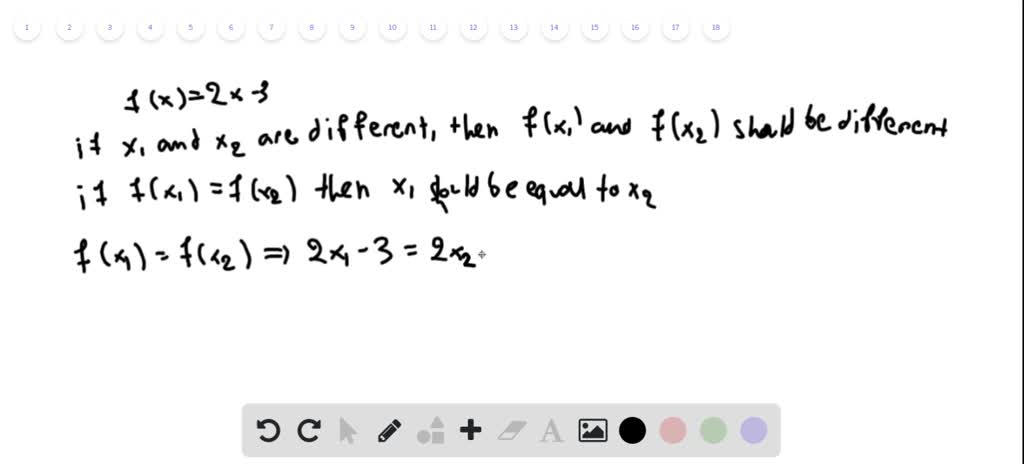 1 2 3 4 5 6 7 8 9 10 11 12 13 14 15 16 17 18
f(x)=2x-3
if x₁ and x₂ are different, then f(x₁) and f(x₂) should be different
if f(x₁) = f(x₂) then x₁ should be equal to x₂
f(x₁) = f(x₂) ⇒ 2x₁ - 3 = 2x₂
A